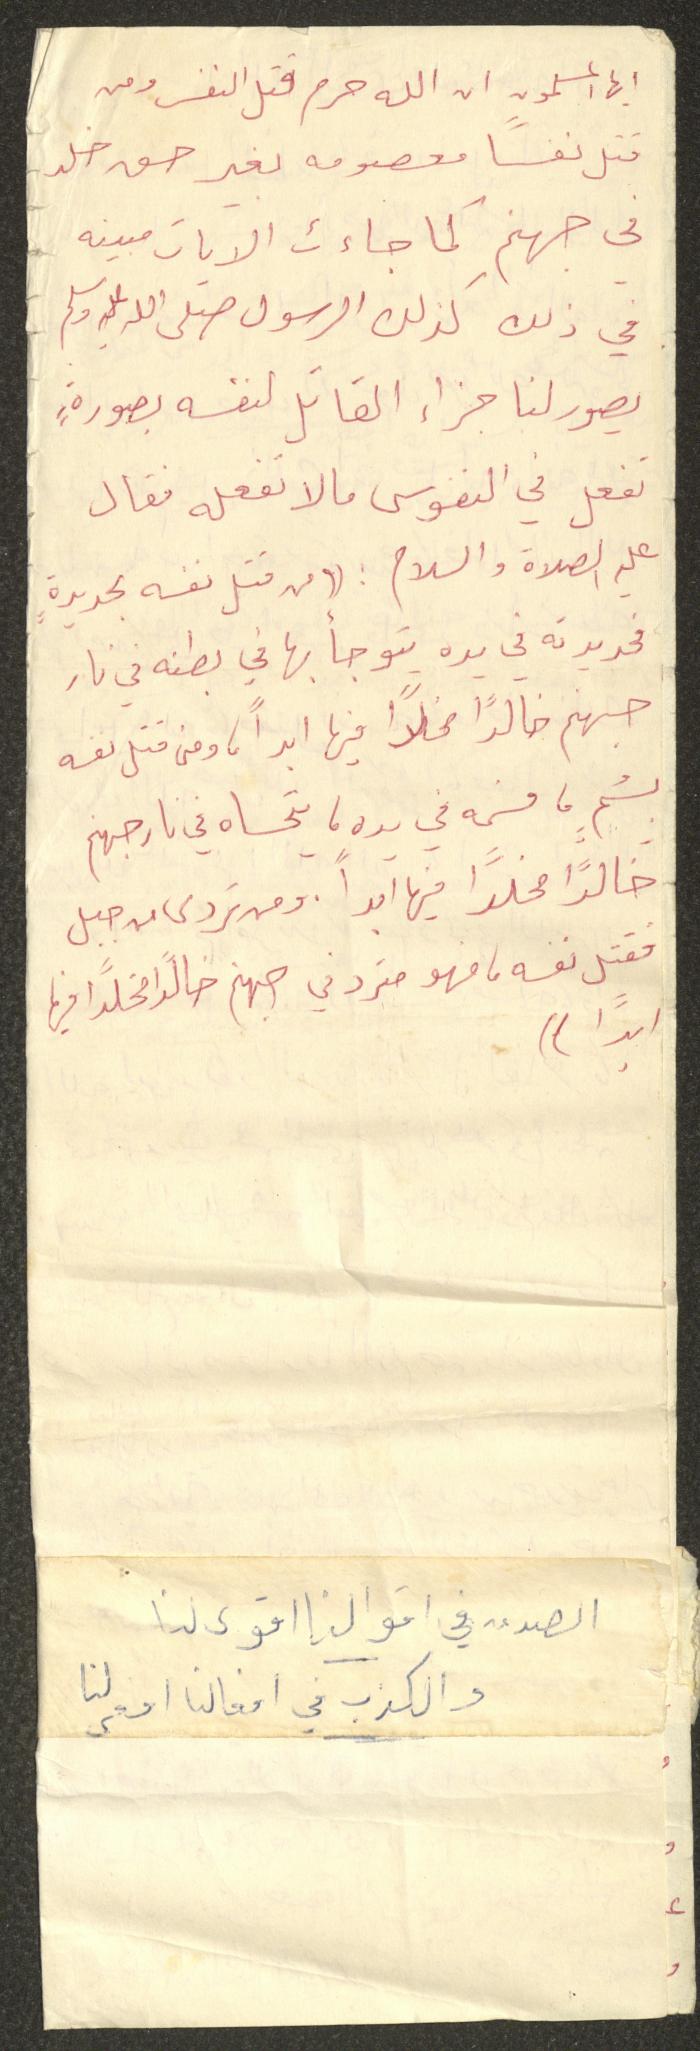 ايها المسلمون ان الله حرم قتل النفس ومن
قتل نفسًا معصومه بغير حق خلد
في جهنم كما جاءت الايات مبينه
في ذلك كذلك الرسول صلى الله عليه وسلم
يصور لنا جزاء القاتل لنفسه بصورةٍ
تفعل في النفوس مالا تفعله فقال
عليه الصلاة والسلام : ((من قتل نفسه بحديدةٍ
فحديدته في يده يتوجأ بها في بطنه في نار
جهنم خالدًا مخلدًا فيها ابداً، ومن قتل نفسه
بسُمٍ، فسمه في يده، يتحساه في نار جهنم
خالدًا مخلدًا فيها ابداً. ومن تردى من جبل
فقتل نفسه، فهو مترد في جهنم خالدًا مخلدًا فيها
ابدًا ))
الصدق في اقوالنا اقوى لنا
والكذب في افعالنا افعى لنا